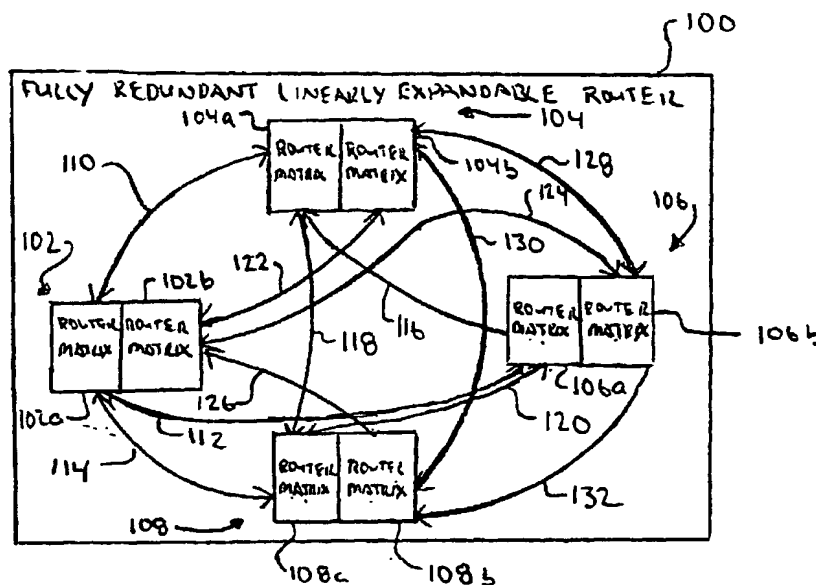 100
FULLY REDUNDANT LINEARLY EXPANDABLE ROUTER
104a
104
ROUTER MATRIX
ROUTER MATRIX
104b
128
110
124
106
130
102
102b
122
116
118
ROUTER MATRIX
ROUTER MATRIX
ROUTER MATRIX
ROUTER MATRIX
106b
126
106a
102a
112
120
114
ROUTER MATRIX
ROUTER MATRIX
132
108
108a
108b